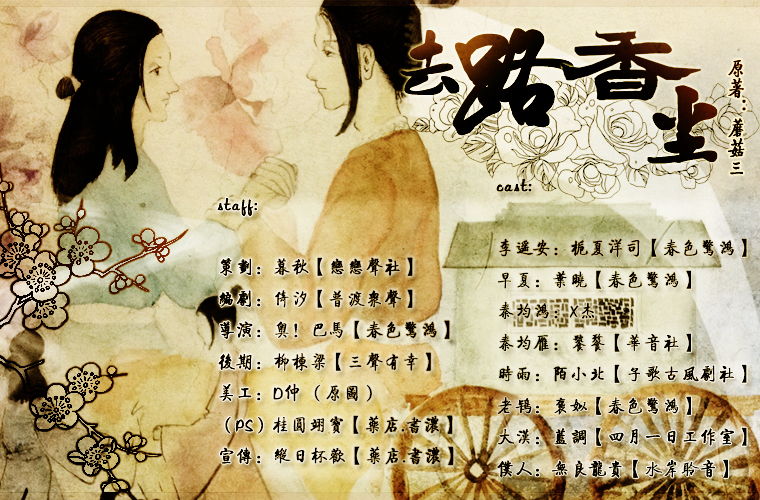 去路香尘
原著：蘑菇三
staff:
策劃：暮秋【戀戀聲社】
編劇：倚汐【普渡衆聲】
導演：奧！巴馬【春色驚鴻】
後期：柳棟梁【三聲有幸】
美工：D仲（原圖）
（PS）桂圓翊寶【藥店.書濃】
宣傳：縱日杯歡【藥店.書濃】
cast:
李遥安：梔夏洋司【春色驚鴻】
早夏：葉曉【春色驚鴻】
秦均鴻：X杰
秦均雁：饕餮【華音社】
時雨：陌小北【子歌古風劇社】
老鴇：褒姒【春色驚鴻】
大漢：藍調【四月一日工作室】
僕人：無良龍貴【水岸聆音】